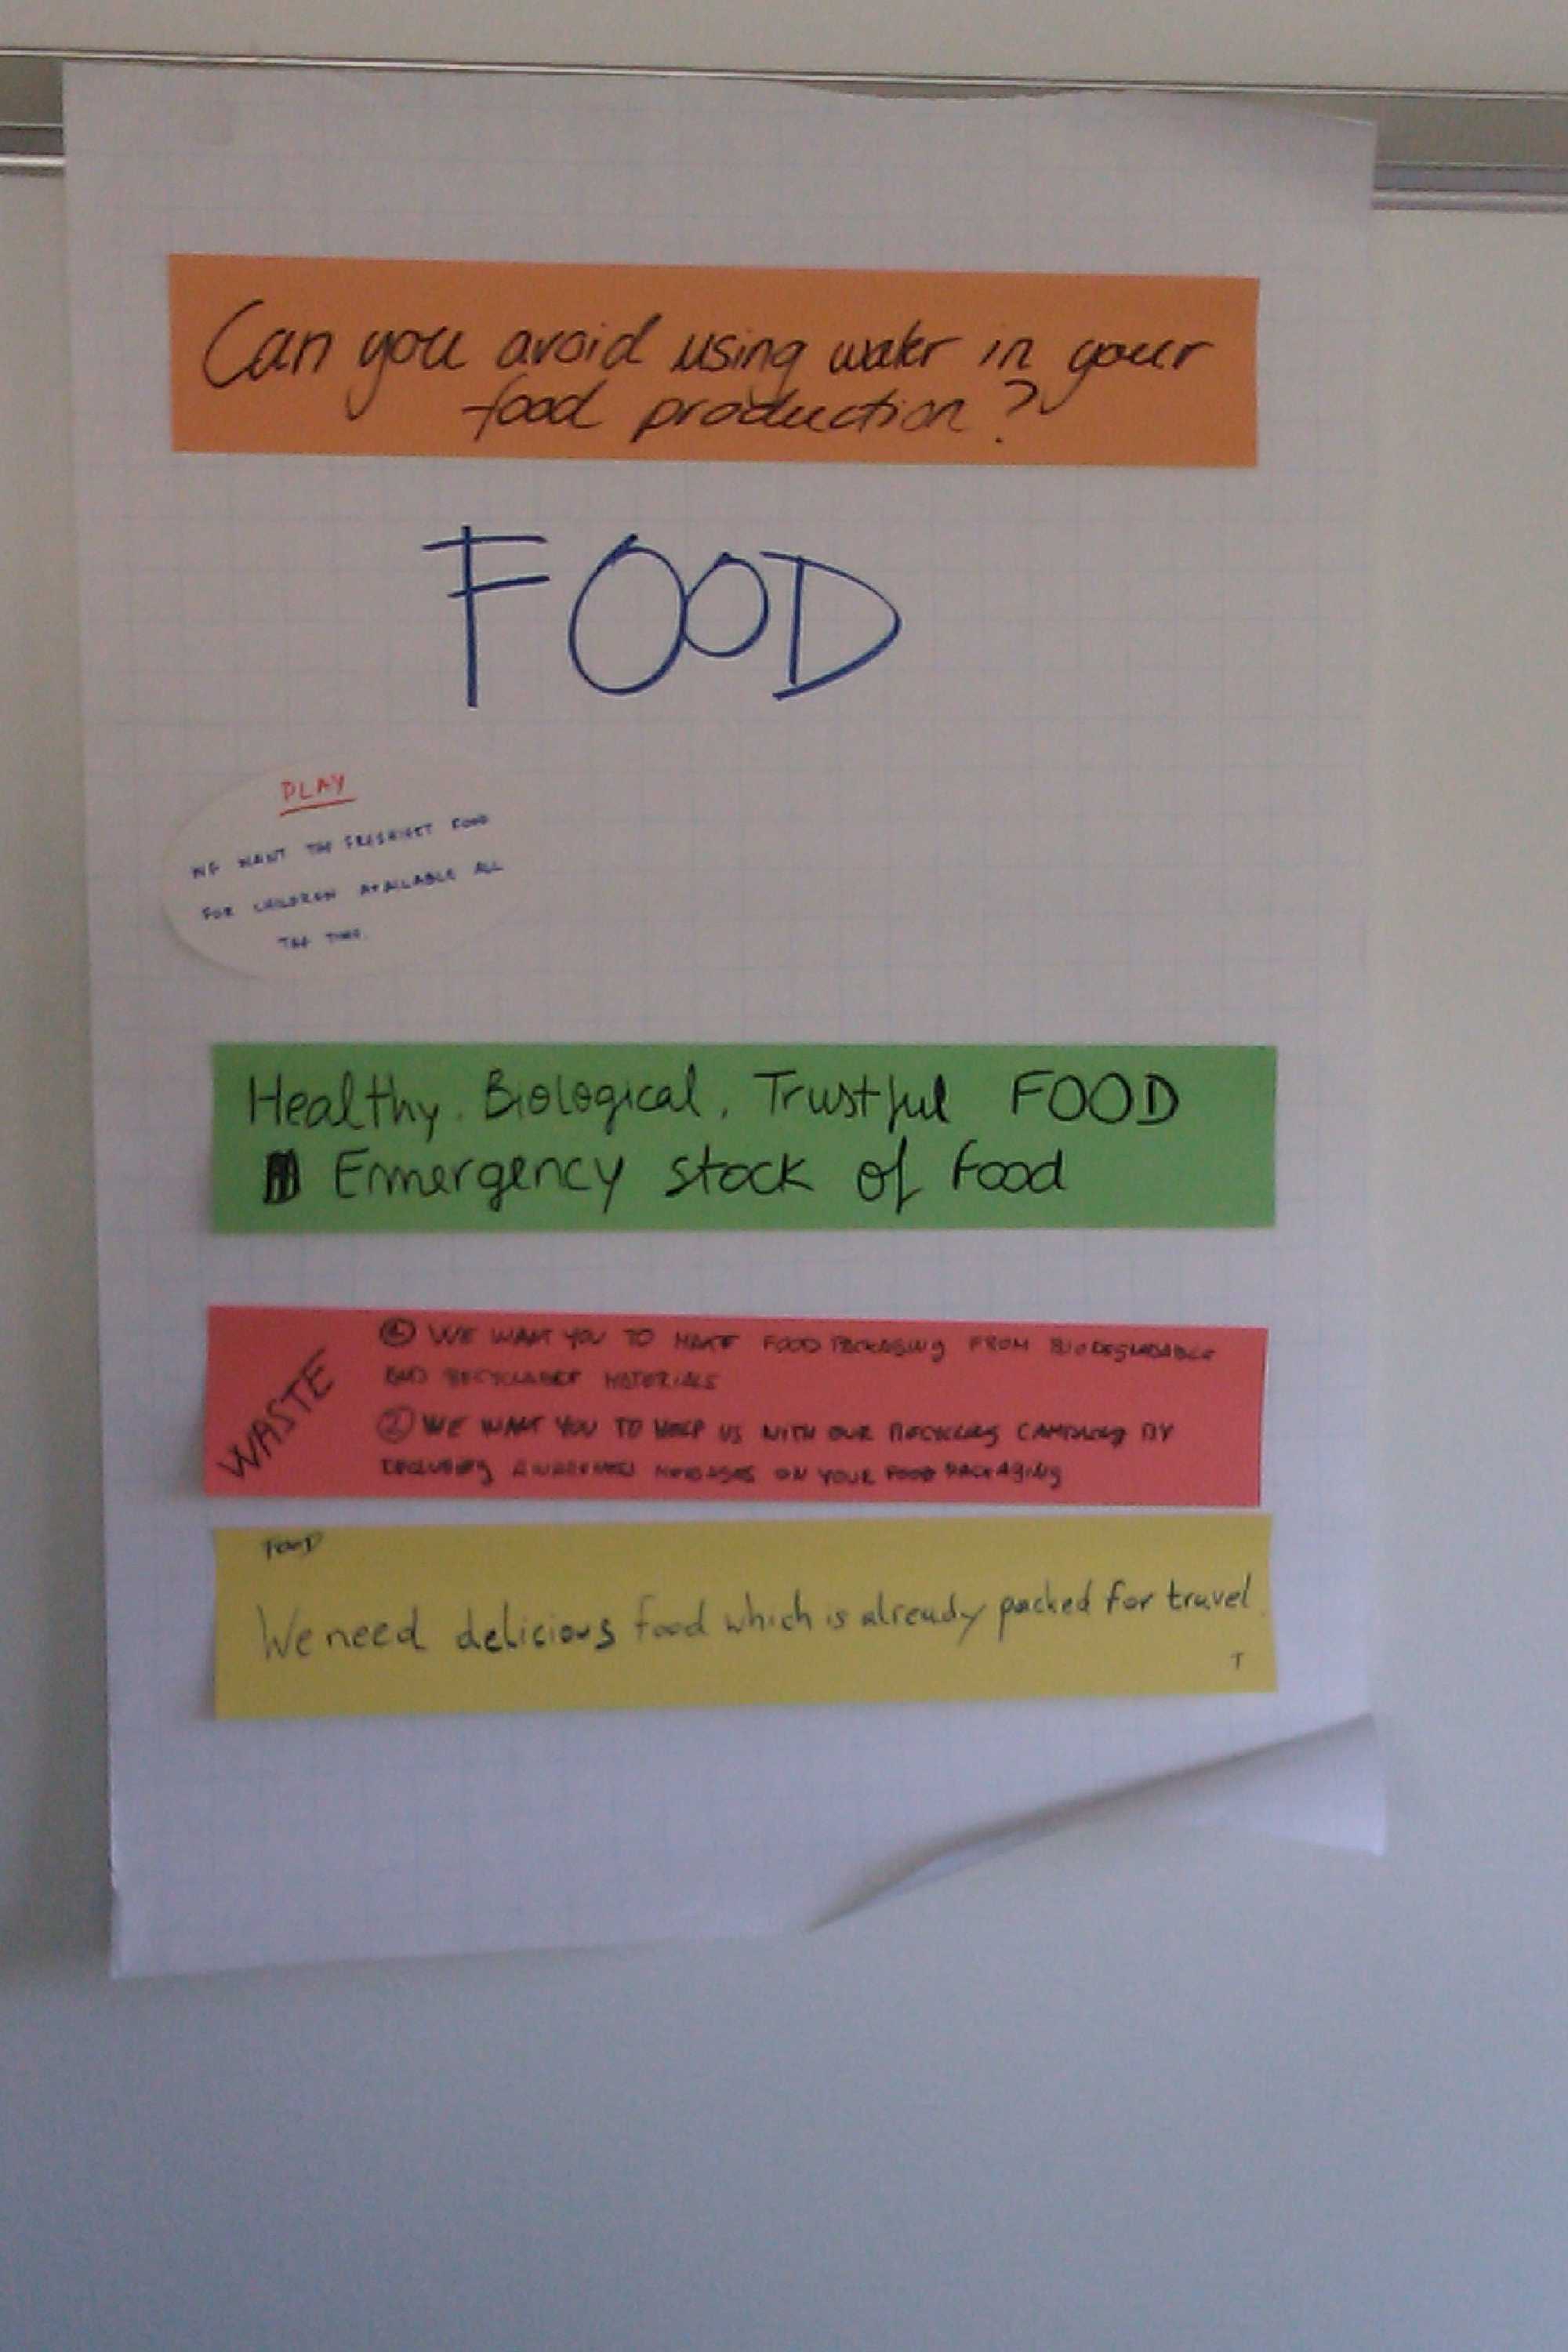 Can you avoid using water in your
food production?
FOOD
PLAY
WE WANT THE FRESHEST FOOD
FOR CHILDREN AVAILABLE ALL
THE TIME.
Healthy. Biological, Trustful FOOD
Emergency stock of food
WASTE
① WE WANT YOU TO MAKE FOOD PACKAGING FROM BIODEGRADABLE
AND RECYCLABLE MATERIALS
② WE WANT YOU TO HELP US WITH OUR RECYCLING CAMPAIGN BY
INCLUDING AWARENESS MESSAGES ON YOUR FOOD PACKAGING
FOOD
We need delicious food which is already packed for travel.
T